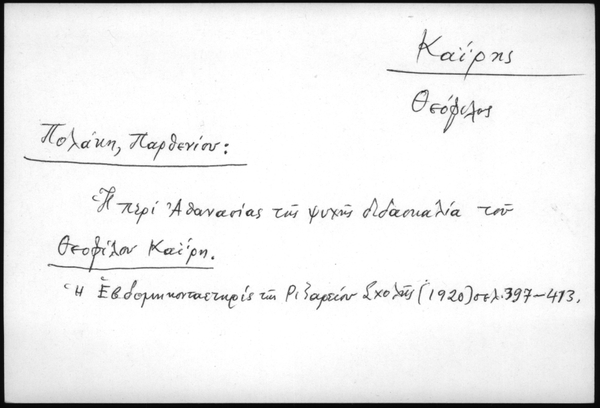 Καΐρης
Θεόφιλος
Πολάκη, Παρθενίου:
Ἡ περί Ἀθανασίας τῆς ψυχῆς διδασκαλία τοῦ
Θεοφίλου Καΐρη.
Ἡ Ἑβδομηκονταετηρίς τῆς Ριζαρείου Σχολῆς (1920) σελ. 397-413.